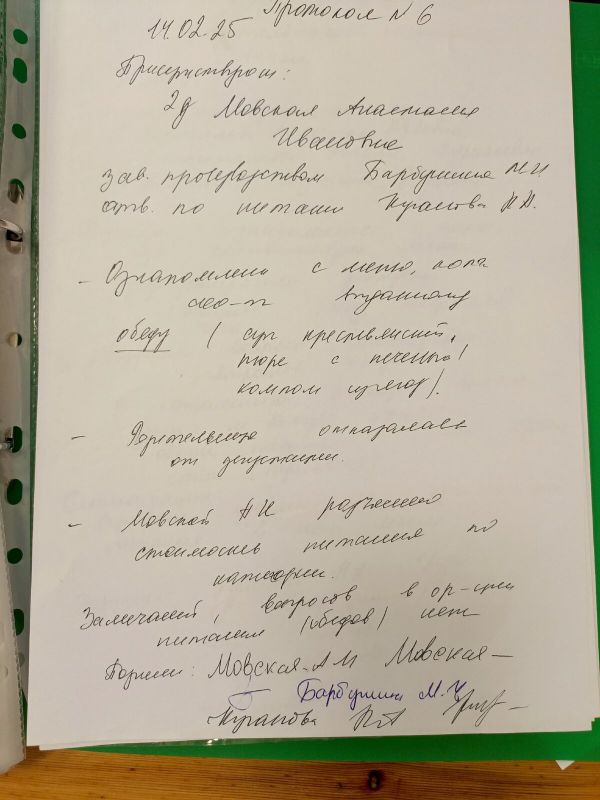 Протокол N 6
14.02.25
Присутствовали:
2д Мовская Анастасия
Ивановна
зав. производством Барбушина М.И
отв. по питанию Курантова Н.А.
- Ознакомлена с меню,
выданному
обеду (суп крестьянский,
пюре с печенью
компот ).
- Родительница отказалась
от дегустации.
- Мовской АИ разъяснено
стоимость питания по
категории.
Замечаний, вопросов в ор-ции
питания (обедов) нет
Мовская АИ Мовская
Барбушина М.И
Курантова НА